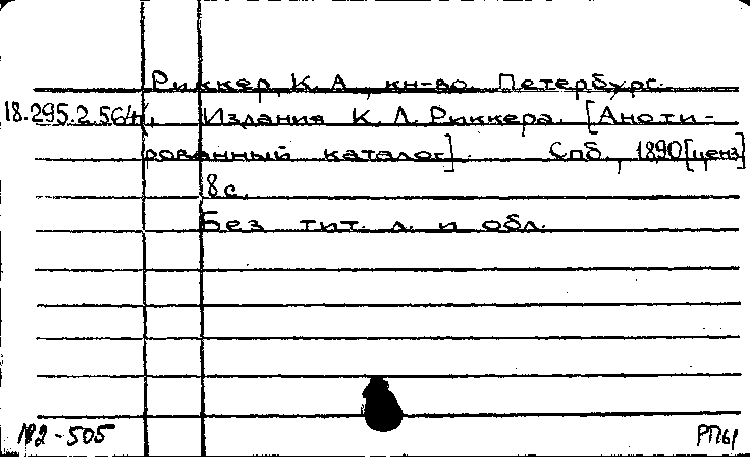 Риккер, К. Л., кн-во. Петербург.
18.295.2.564 Издания К. Л. Риккера. [Аноти-
рованный каталог]. Спб., 1890[ценз]
8 с.
Без тит. л. и обл.
№2-505
РП61